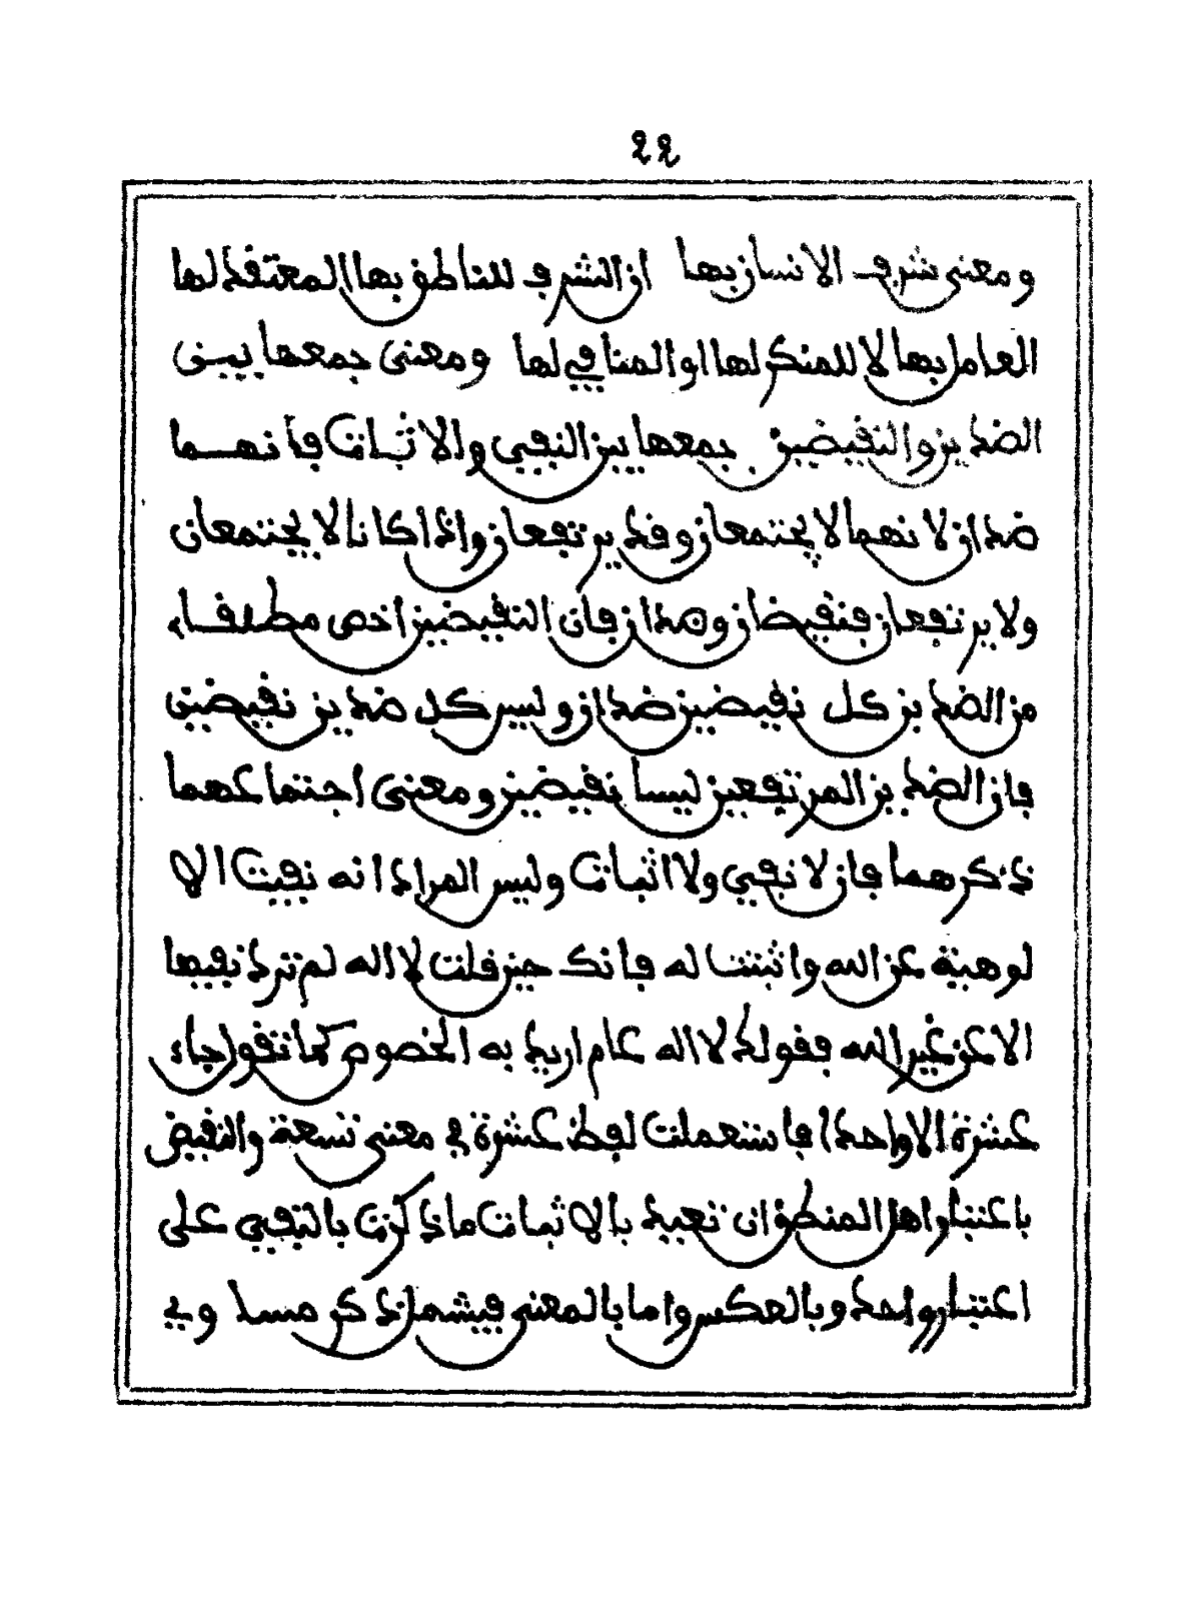 ٢٢
ومعنى شرف الانسان بها ان الشرف للناطق بها المعتقد لها
العامل بها لا للمنكر لها او المنافي لها ومعنى جمعها بين
الضدين والنقيضين جمعها بين النفي والاثبات فانهما
ضدان لانهما لا يجتمعان وقد يرتفعان واذا كانا لا يجتمعان
ولا يرتفعان فنقيضان وضدان فان النقيضين اخص مطلقا
من الضدين كل نقيضين ضدان وليس كل ضدين نقيضين
فان الضدين المرتفعين ليسا نقيضين ومعنى اجتماعهما
ذكرهما فان لا نفي ولا اثبات وليس المراد انه نفيت الا
لوهية عن الله واثبتها له فانك حين قلت لا اله لم ترد نفيها
الا عن غير الله فقولك لا اله عام اريد به الخصوص كما تقول جاء
عشرة الا واحدا فاستعملت لفظ عشرة في معنى تسعة والنقيض
باعتبار اهل المنطق ان تعيد بالاثبات ما ذكرت بالنفي على
اعتبار واحد وبالعكس واما بالمعنى فيشمل ذكر مسا وي